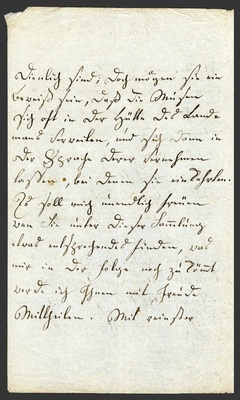 dienlich sind; doch mögen sie ein
beweiß sein, daß die Musen
sich oft in der Hütte des Land-
mans verweilen, und sich dann in
der Sprache derer vernehmen
lassen, bei denen sie einkehrten.
Es soll mich unendlich freuen
wen Sie unter dieser Sammlung
etwas entsprechendes finden, was
mir in der folge noch zu kömmt
werde ich Ihnen mit freude
Mittheilen. Mit reinster